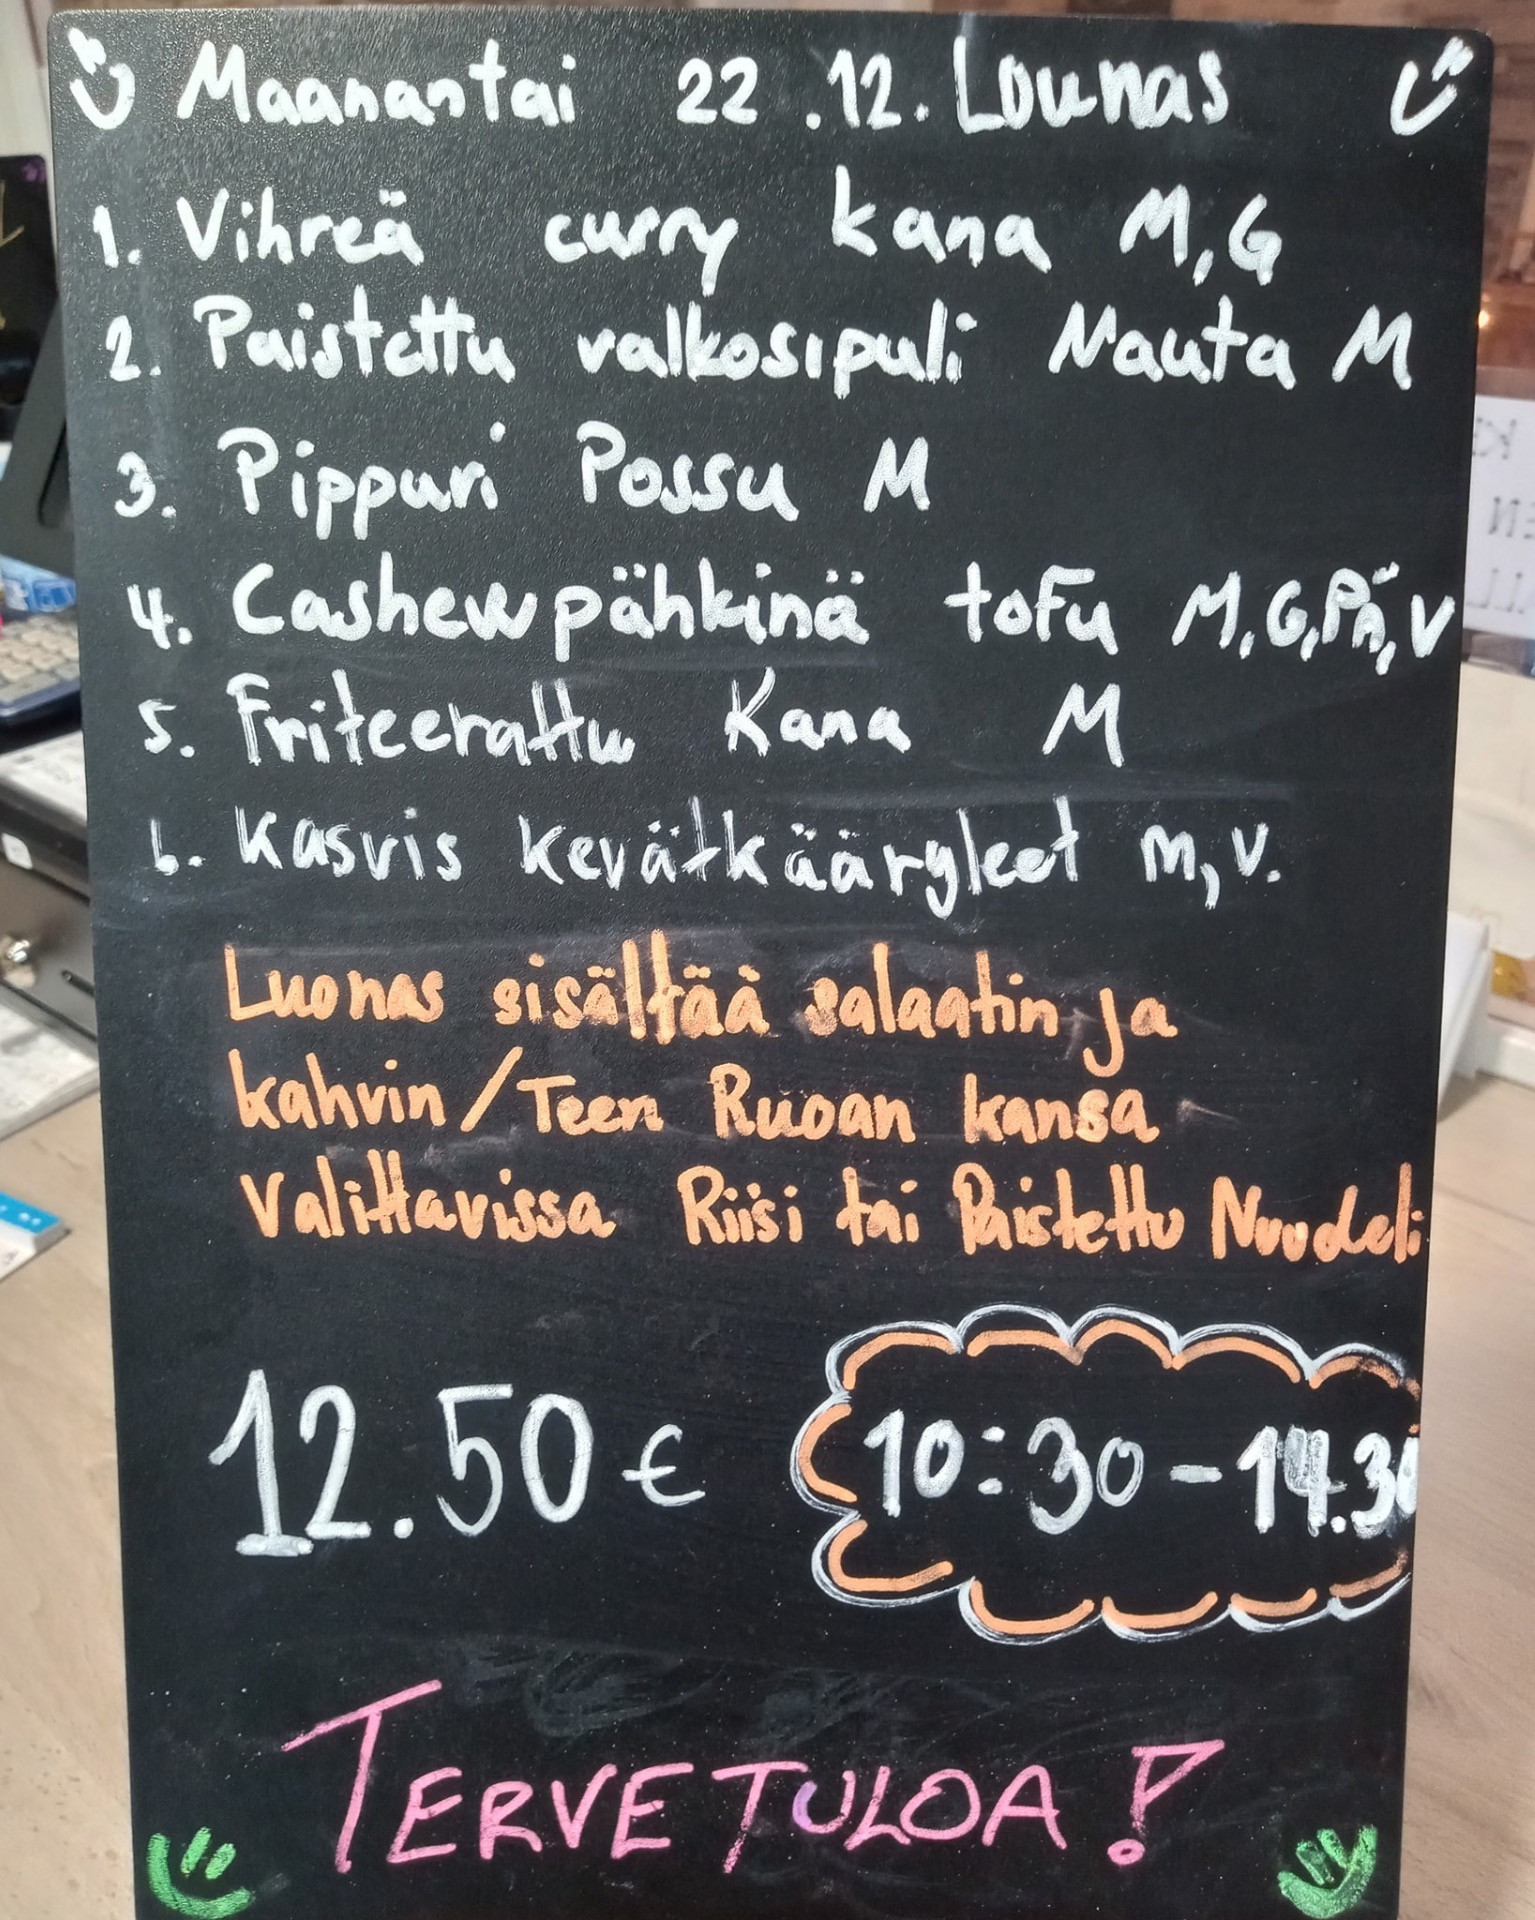 Maanantai 22.12. Lounas
1. Vihreä curry kana M,G
2. Paistettu valkosipuli Nauta M
3. Pippuri Possu M
4. Cashewpähkinä toFu M,G,Pä,V
5. Friteerattu Kana M
6. Kasvis kevätkäärgleet M,V.
Luonas sisältää salaatin ja
kahvin/Teen Ruoan kansa
Valittavissa Riisi tai Paistettu Nuudeli
12.50 €
10:30-14.30
TERVETULOA!